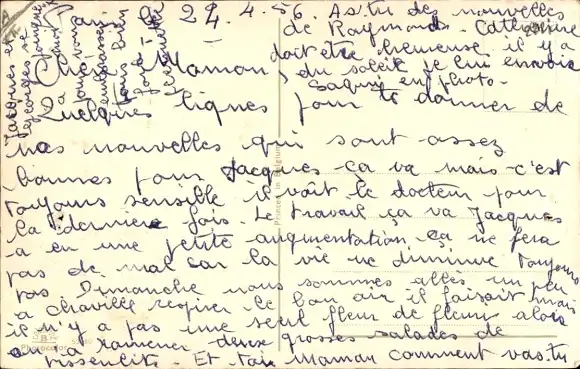 Paris le 24.4.56.
Chère Maman,
Quelques lignes pour te donner de
nos nouvelles qui sont assez
bonnes pour Jacques ça va mais c'est
toujours sensible il voit le docteur pour
la dernière fois. Le travail ça va Jacques
a eu une petite augmentation ça ne fera
pas de mal car la vie ne diminue toujours
pas Dimanche nous sommes allés un peu
a Chaville respirer le bon air il faisait mais
il n'y a pas une seul fleur de fleur alors
on a ramener deux grosses salades de
pissenlits. Et toi Maman comment vas-tu
As.tu des nouvelles
de Raymonds. Catherine
doit être heureuse il y a
du soleil je lui envoie
en photo.
vous
embrasse
tous bien
fort à
Printed in Belgium